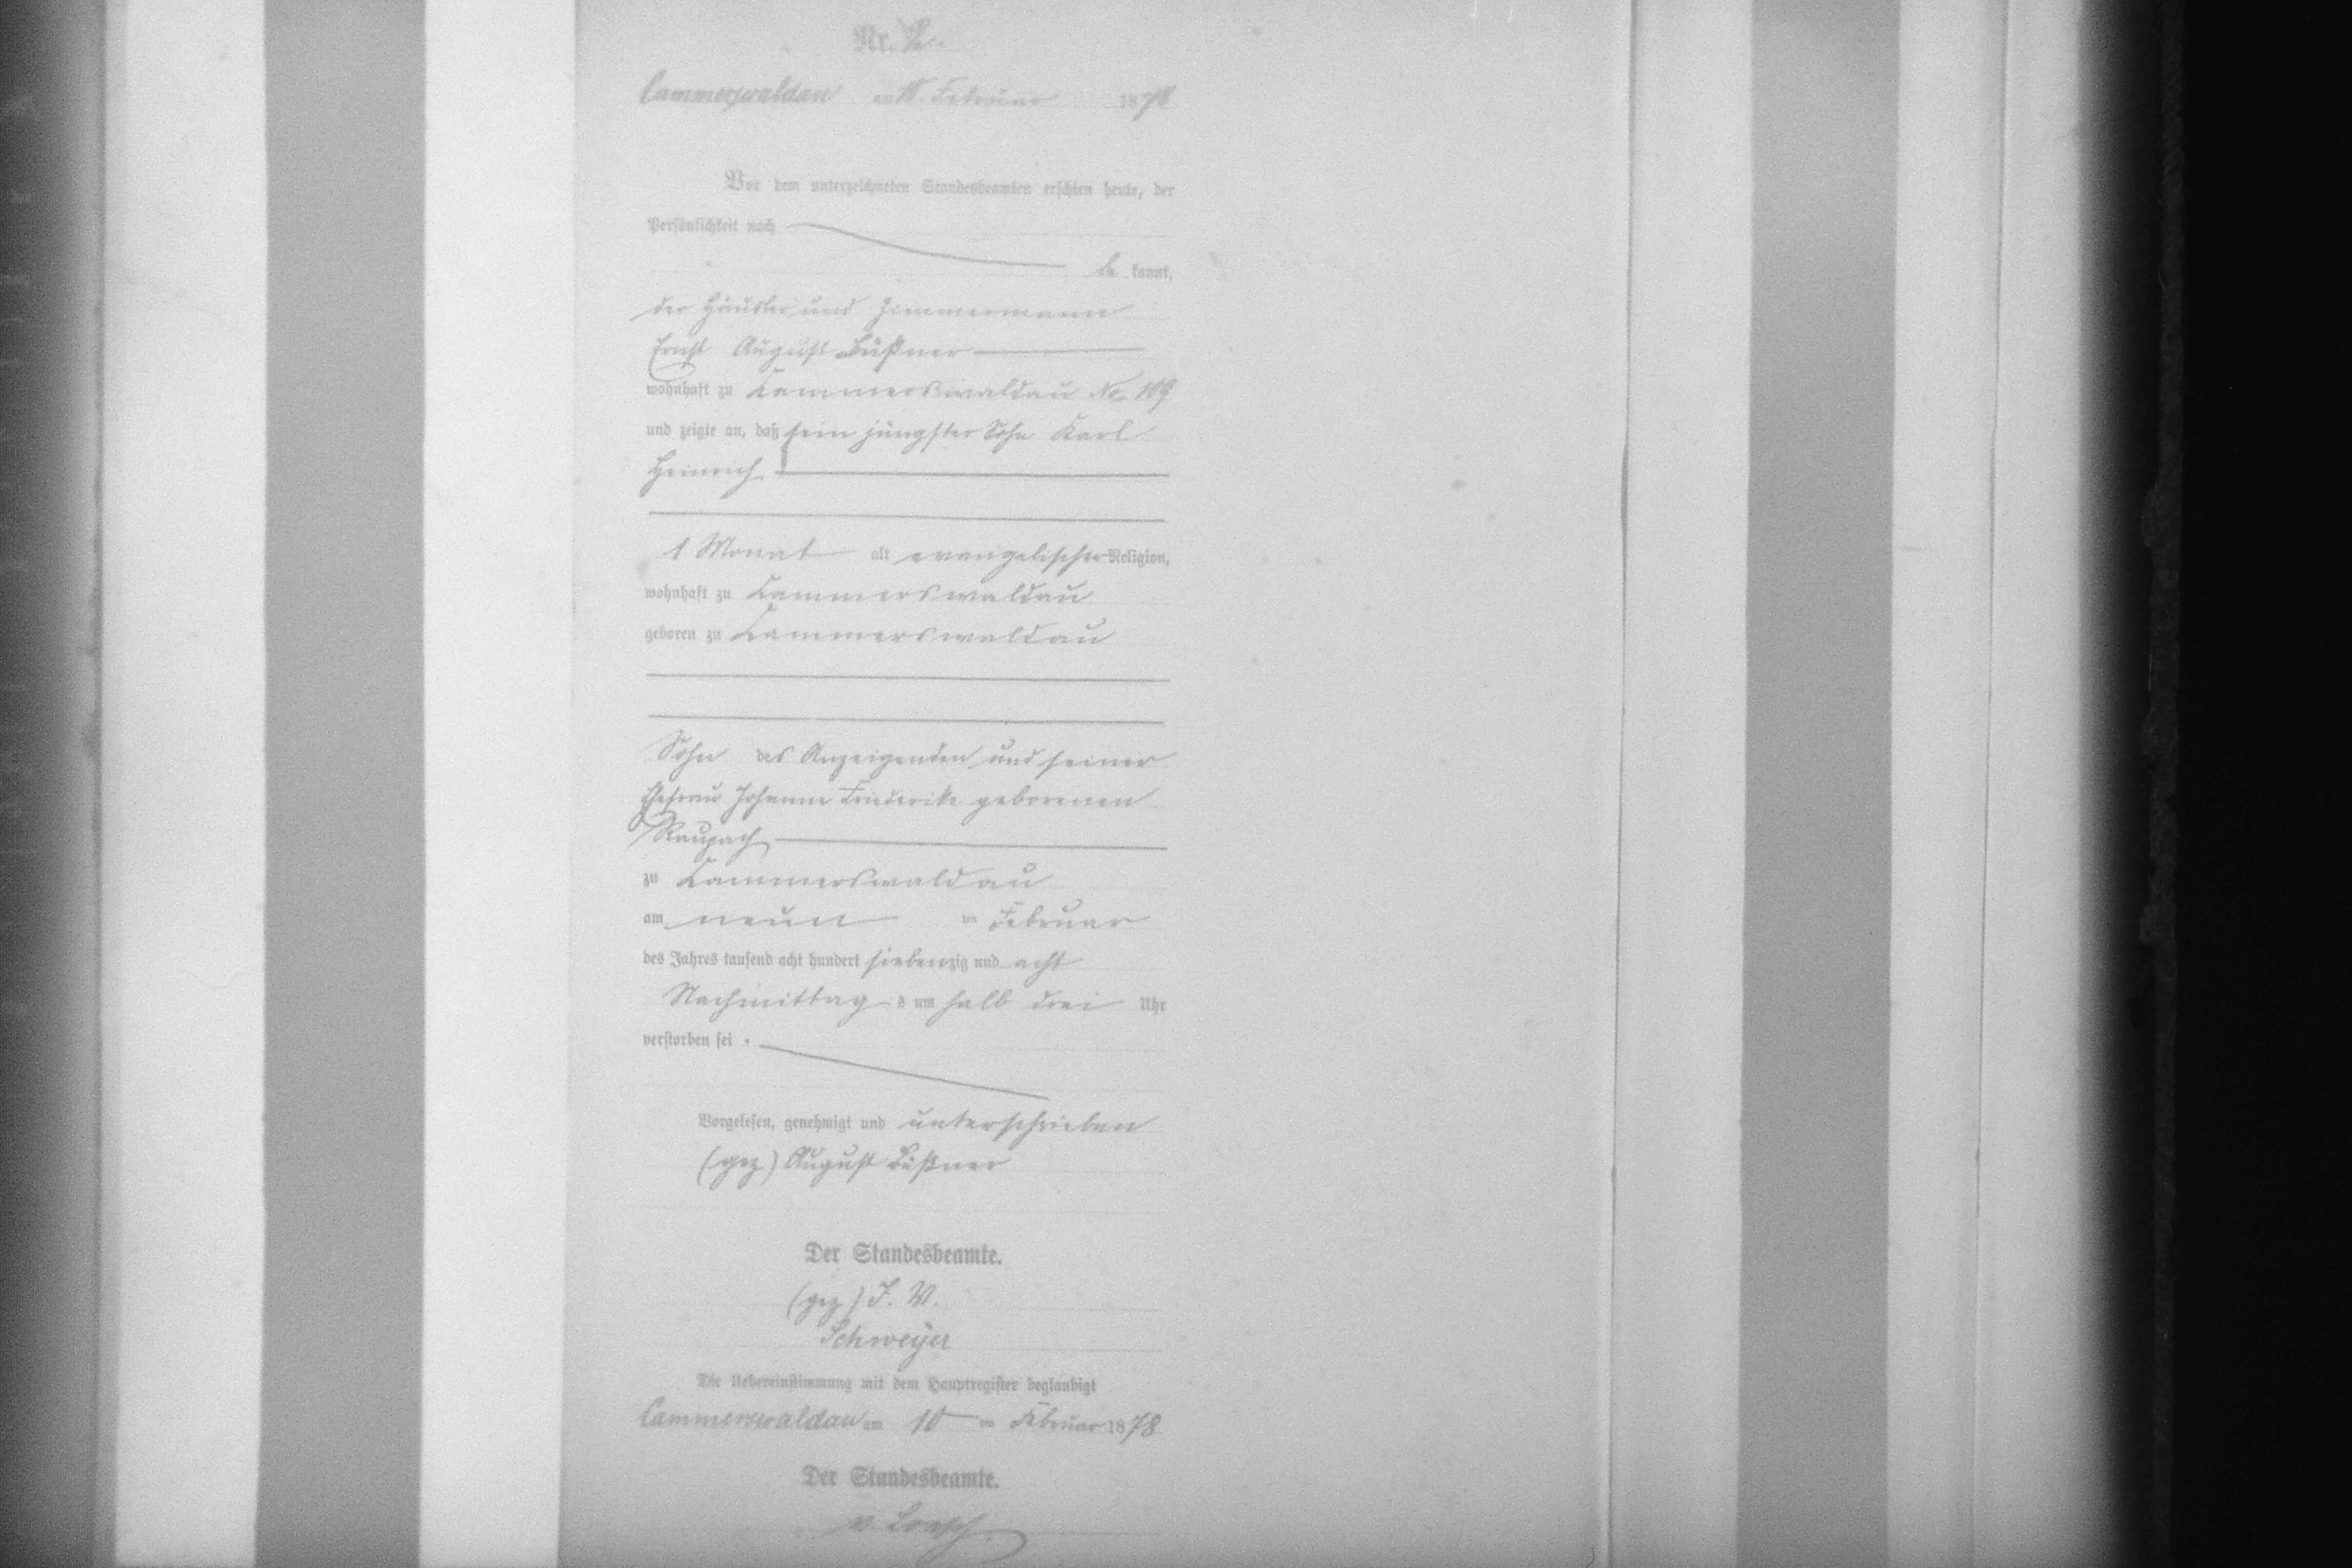 Nr. 2.
Cammerswaldau am Februar 1878
Vor dem unterzeichneten Standesbeamten erschien heute, der
Persönlichkeit nach
be kannt,
der Häusler und Zimmermann
Ernst August Büßner
wohnhaft zu Cammerswaldau No. 109
und zeigte an, daß sein jüngster Sohn Karl
Heinrich
1 Monat alt evangelischer Religion,
wohnhaft zu Cammerswaldau
geboren zu Cammerswaldau
Sohn des Anzeigenden und seiner
Ehefrau Johanne Friederike geborenen
Raupach
zu Cammerswaldau
am neun ten Februar
des Jahres tausend acht hundert siebenzig und acht
Nachmittag s um halb drei Uhr
verstorben sei.
Vorgelesen, genehmigt und unterschrieben
(gez) August Büßner
Der Standesbeamte.
(gez) J. V.
Schweijer
Die Uebereinstimmung mit dem Hauptregister beglaubigt
Cammerswaldau am 10 ten Februar 1878
Der Standesbeamte.